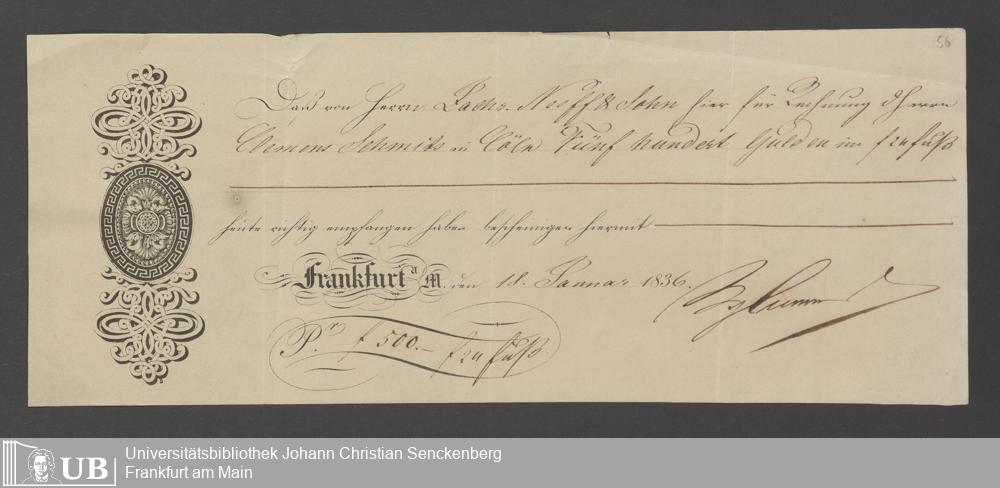 56
Daß von Herrn Zachr. Neeff & Sohn hier für Rechnung d Herrn
Clemens Schmits in Cöln Fünf hundert Gulden im f 24 fuß
heute richtig empfangen habe, bescheinige hiermit
Frankfurt a M. den 18. Januar 1836.
Pr. f 500.- f 24 fuß.
UB Universitätsbibliothek Johann Christian Senckenberg
Frankfurt am Main